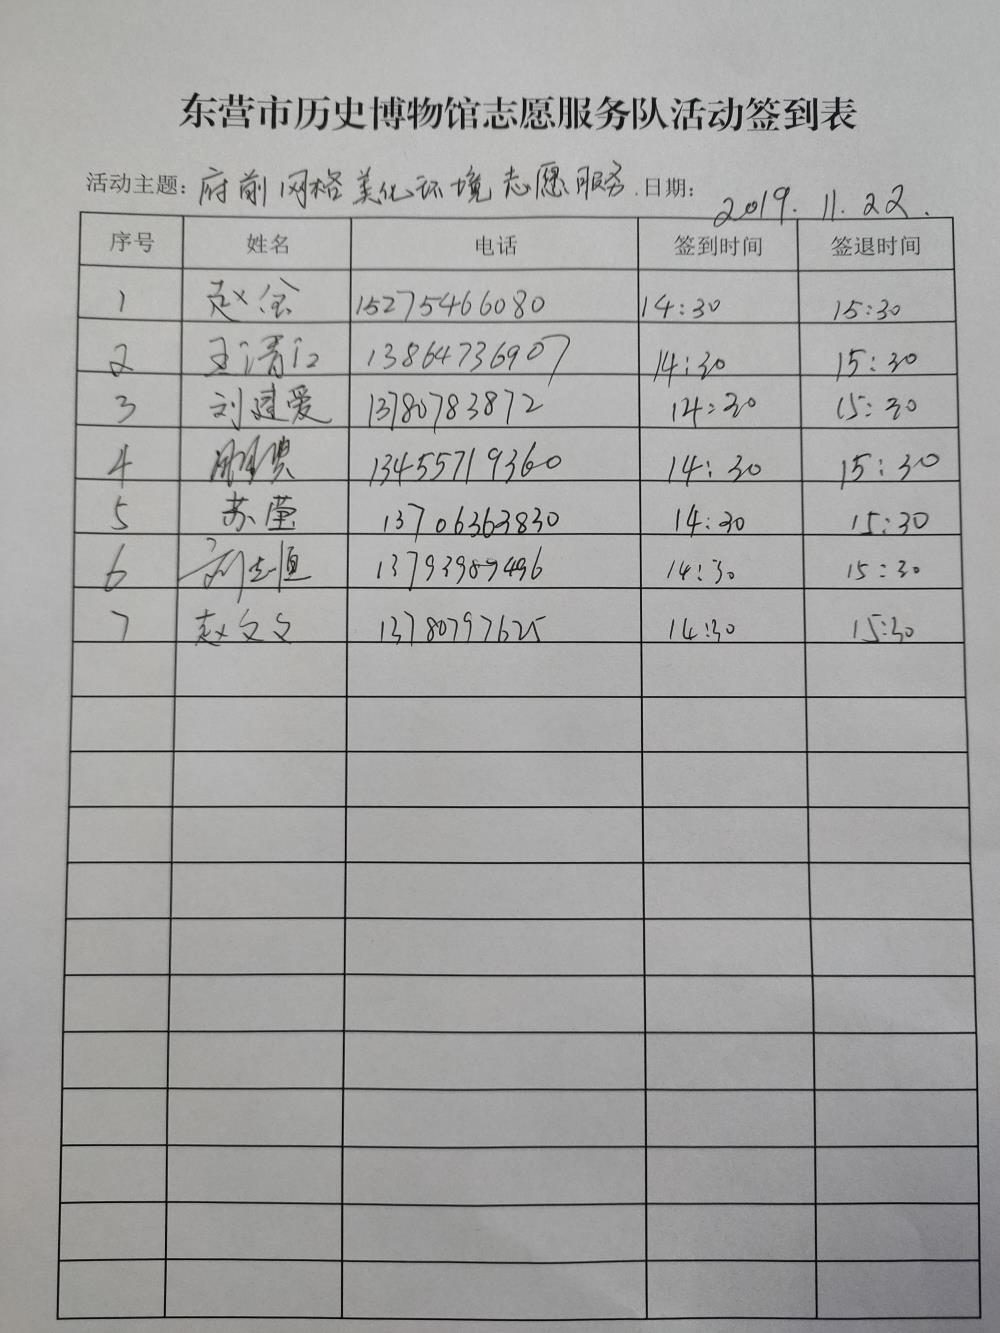 东营市历史博物馆志愿服务队活动签到表
活动主题：府前网格美化环境志愿服务.日期：2019.11.22.
序号 姓名 电话 签到时间 签退时间
1 赵金 15275466080 14:30 15:30
2 王清江 13864736907 14:30 15:30
3 刘建爱 13780783872 14:30 15:30
4 13455719360 14:30 15:30
5 苏莹 13706363830 14:30 15:30
6 刘志恒 13793989496 14:30 15:30
7 赵文文 13780797625 14:30 15:30